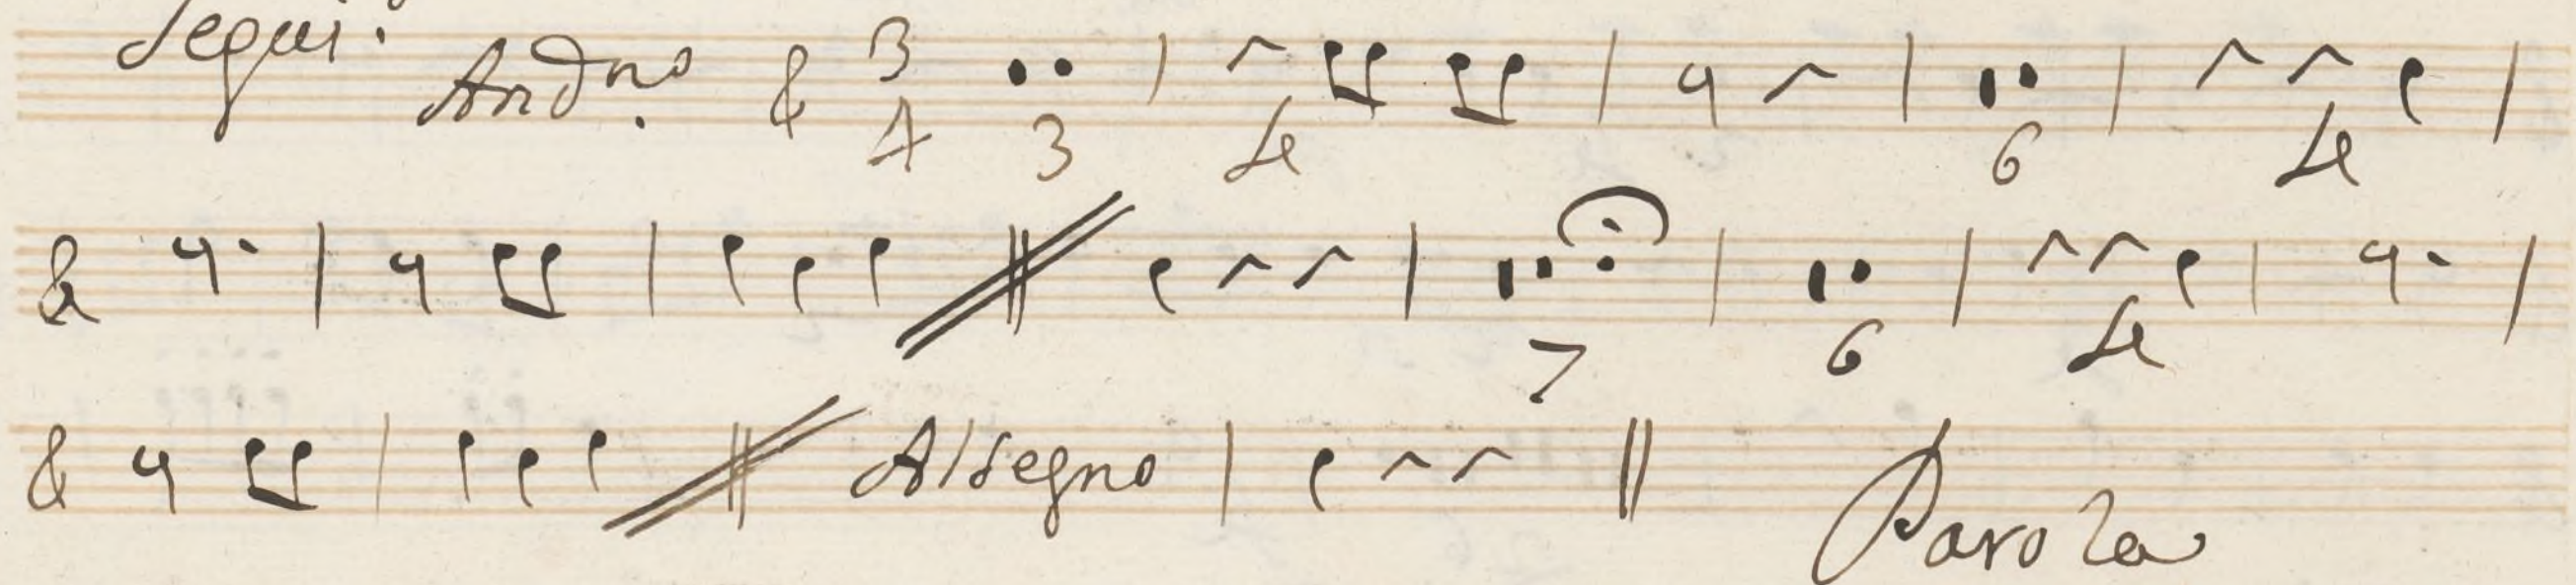 Segui.
And.no 3 4 3 Le 6 Le
7 6 Le
Al Segno Parola